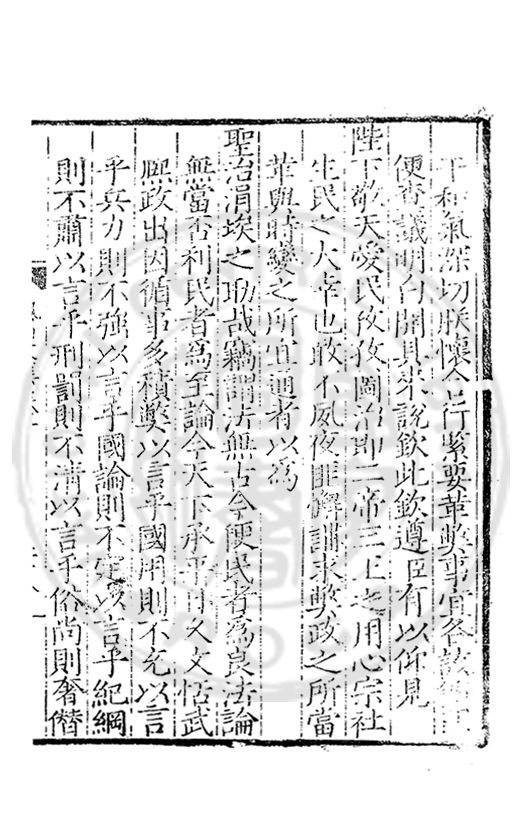 干和氣深切朕懷今後緊要革弊事宜各該衙門
便查議明白開具來說欽此欽遵臣有以仰見
陛下敬天愛民孜孜圖治即二帝三王之用心宗社
生民之大幸也敢不夙夜匪懈講求弊政之所當
革與時變之所宜通者以為
聖治涓埃之助哉竊謂法無古今便民者為良法論
無當否利民者為至論今天下承平日久文恬武
熙政出因循事多積弊以言乎國用則不充以言
乎兵力則不強以言乎國論則不定以言乎紀綱
則不肅以言乎刑罰則不清以言乎俗尚則奢僭